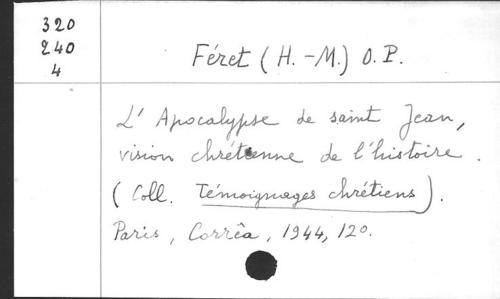 320
240
4
Féret (H.-M.) O.P.
L'Apocalypse de saint Jean,
vision chrétienne de l'histoire.
(Coll. Témoignages chrétiens).
Paris, Corrêa, 1944, 12º.